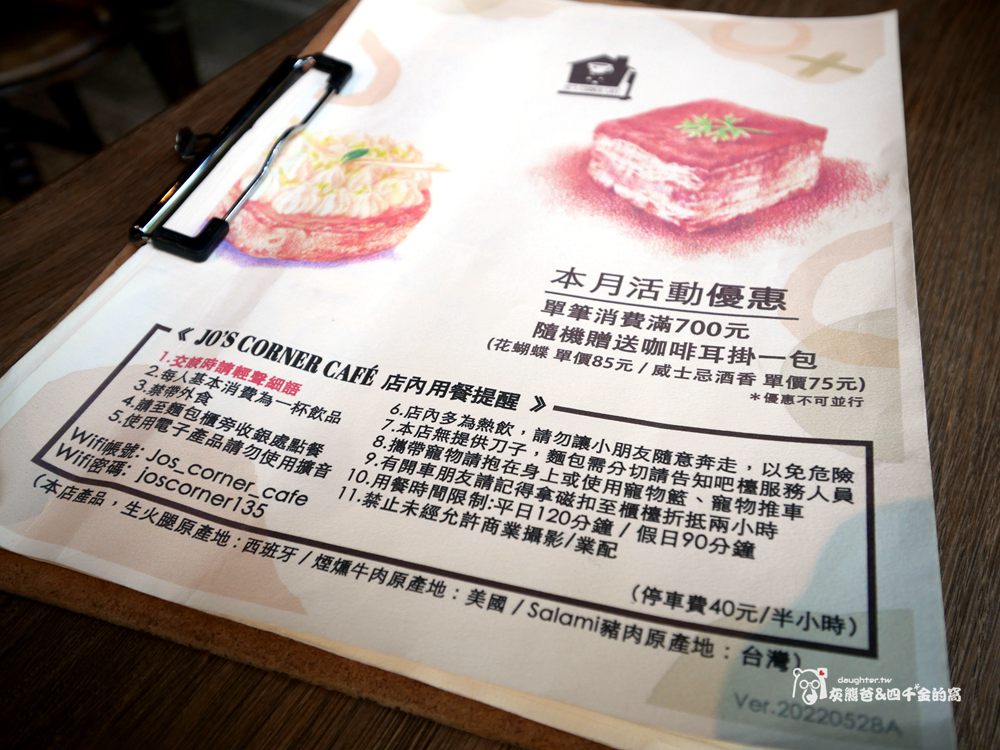 本月活動優惠
單筆消費滿700元
隨機贈送咖啡耳掛一包
(花蝴蝶 單價85元 / 威士忌酒香 單價75元)
*優惠不可並行
《 JO'S CORNER CAFÉ 店內用餐提醒 》
1.交談時請輕聲細語
2.每人基本消費為一杯飲品
3.禁帶外食
4.請至麵包櫃旁收銀處點餐
5.使用電子產品請勿使用擴音
Wifi帳號: Jos_corner_cafe
Wifi密碼: joscorner135
6.店內多為熱飲，請勿讓小朋友隨意奔走，以免危險
7.本店無提供刀子，麵包需分切請告知吧檯服務人員
8.攜帶寵物請抱在身上或使用寵物籃、寵物推車
9.有開車朋友請記得拿磁扣至櫃檯折抵兩小時
10.用餐時間限制:平日120分鐘 / 假日90分鐘
11.禁止未經允許商業攝影/業配
(停車費40元/半小時)
(本店產品，生火腿原產地：西班牙 / 煙燻牛肉原產地：美國 / Salami豬肉原產地：台灣)
Ver.20220528A
daughter.tw
灰熊爸&四千金的窩